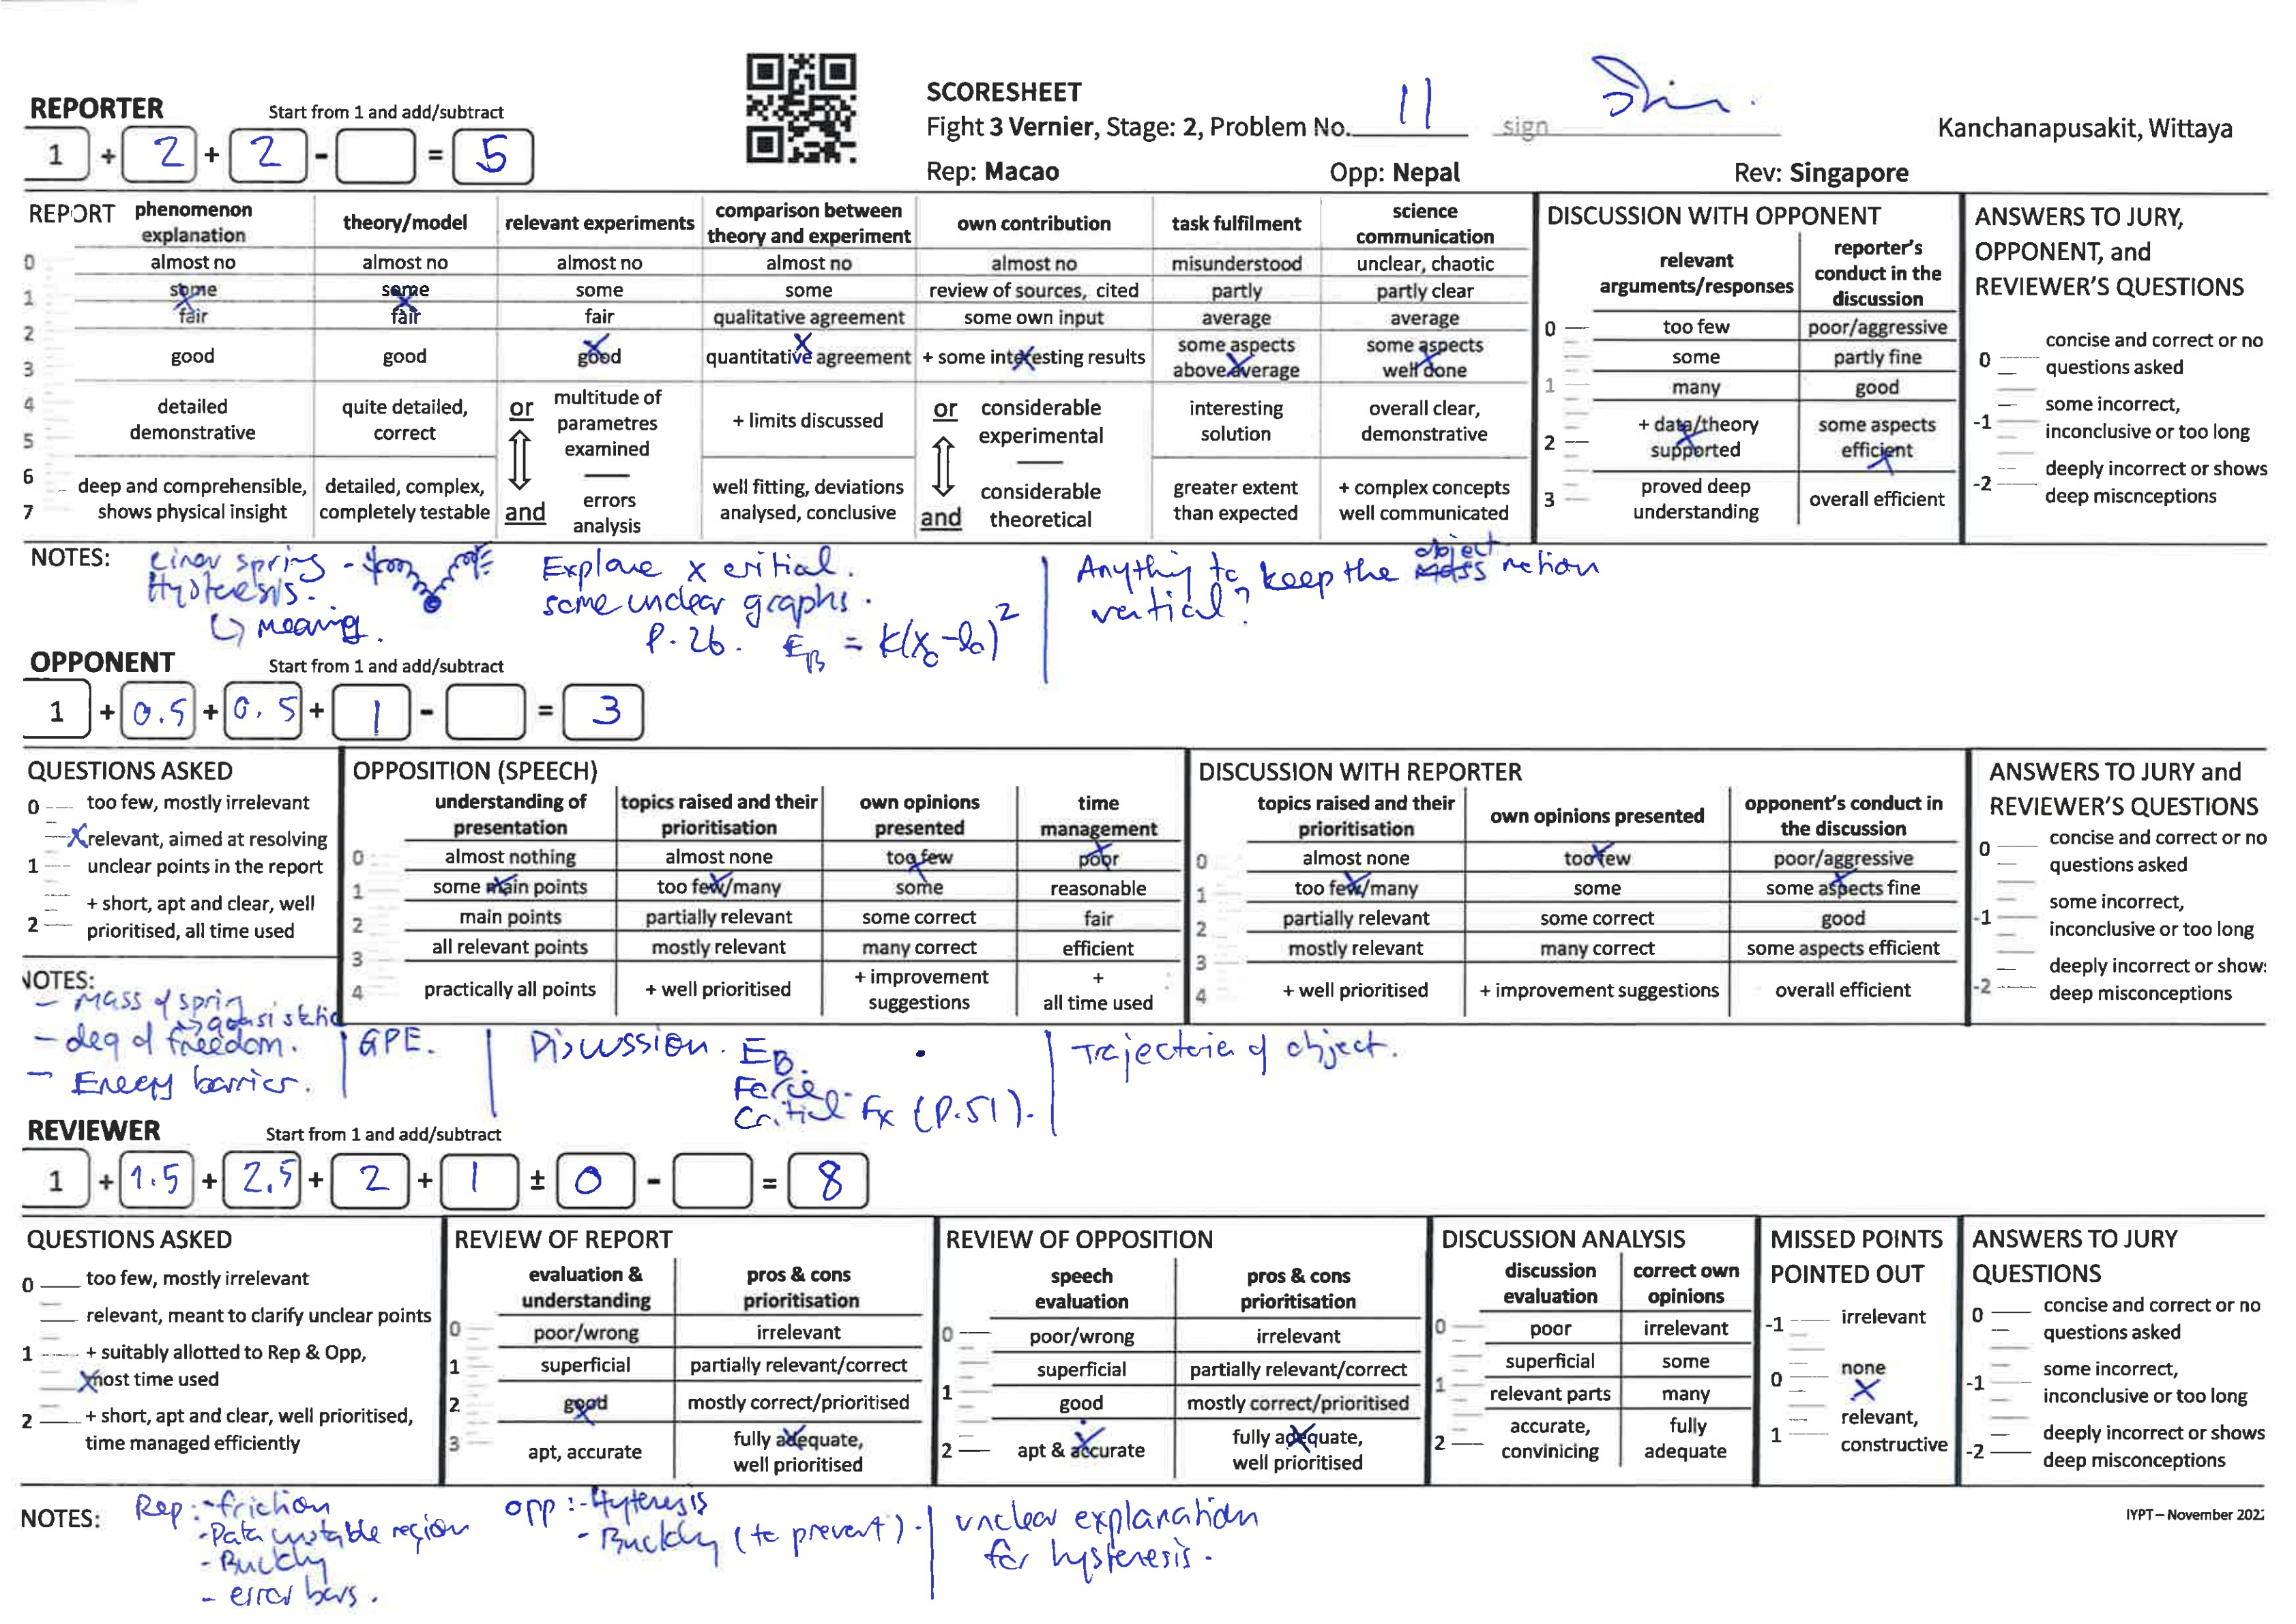 SCORESHEET
Fight 3 Vernier, Stage: 2, Problem No. 11 sign
Kanchanapusakit, Wittaya
Rep: Macao Opp: Nepal Rev: Singapore
REPORTER Start from 1 and add/subtract
1 + 2 + 2 - = 5
REPORT
phenomenon explanation theory/model relevant experiments comparison between theory and experiment own contribution task fulfilment science communication
0 almost no almost no almost no almost no almost no misunderstood unclear, chaotic
1 some some some some review of sources, cited partly partly clear
fair fair fair qualitative agreement some own input average average
2
3 good good good quantitative agreement + some interesting results some aspects above average some aspects well done
4 detailed demonstrative quite detailed, correct or multitude of parametres examined + limits discussed or considerable experimental interesting solution overall clear, demonstrative
5
6 deep and comprehensible, shows physical insight detailed, complex, completely testable and errors analysis well fitting, deviations analysed, conclusive and considerable theoretical greater extent than expected + complex concepts well communicated
7
DISCUSSION WITH OPPONENT
relevant arguments/responses reporter's conduct in the discussion
0 too few poor/aggressive
some partly fine
1 many good
2 + data/theory supported some aspects efficient
3 proved deep understanding overall efficient
ANSWERS TO JURY,
OPPONENT, and
REVIEWER'S QUESTIONS
0 concise and correct or no questions asked
-1 some incorrect, inconclusive or too long
-2 deeply incorrect or shows deep miscnceptions
NOTES:
spring -
Hysteresis.
↳ meaning.
Explore x critical.
some unclear graphs.
P. 26. E_B = k(x_c - l_0)^2
Anything to keep the object motion
vertical?
OPPONENT Start from 1 and add/subtract
1 + 0.5 + 0.5 + 1 - = 3
QUESTIONS ASKED
0 too few, mostly irrelevant
relevant, aimed at resolving
1 unclear points in the report
+ short, apt and clear, well
2 prioritised, all time used
OPPOSITION (SPEECH)
understanding of presentation topics raised and their prioritisation own opinions presented time management
0 almost nothing almost none too few poor
1 some main points too few/many some reasonable
2 main points partially relevant some correct fair
3 all relevant points mostly relevant many correct efficient
4 practically all points + well prioritised + improvement suggestions + all time used
DISCUSSION WITH REPORTER
topics raised and their prioritisation own opinions presented opponent's conduct in the discussion
0 almost none too few poor/aggressive
1 too few/many some some aspects fine
2 partially relevant some correct good
3 mostly relevant many correct some aspects efficient
4 + well prioritised + improvement suggestions overall efficient
ANSWERS TO JURY and
REVIEWER'S QUESTIONS
0 concise and correct or no questions asked
-1 some incorrect, inconclusive or too long
-2 deeply incorrect or show: deep misconceptions
NOTES:
- Mass of spring
→ quasi static
- deg of freedom.
- Energy barrier.
GPE.
Discussion. E_B.
Force.
Critical Fx (P.51).
Trajectories of object.
REVIEWER Start from 1 and add/subtract
1 + 1.5 + 2.5 + 2 + 1 ± 0 - = 8
QUESTIONS ASKED
0 too few, mostly irrelevant
relevant, meant to clarify unclear points
1 + suitably allotted to Rep & Opp,
most time used
2 + short, apt and clear, well prioritised,
time managed efficiently
REVIEW OF REPORT
evaluation & understanding pros & cons prioritisation
0 poor/wrong irrelevant
1 superficial partially relevant/correct
2 good mostly correct/prioritised
3 apt, accurate fully adequate, well prioritised
REVIEW OF OPPOSITION
speech evaluation pros & cons prioritisation
0 poor/wrong irrelevant
superficial partially relevant/correct
1 good mostly correct/prioritised
2 apt & accurate fully adequate, well prioritised
DISCUSSION ANALYSIS
discussion evaluation correct own opinions
0 poor irrelevant
superficial some
1 relevant parts many
2 accurate, convinicing fully adequate
MISSED POINTS
POINTED OUT
-1 irrelevant
0 none
1 relevant, constructive
ANSWERS TO JURY
QUESTIONS
0 concise and correct or no questions asked
-1 some incorrect, inconclusive or too long
-2 deeply incorrect or shows deep misconceptions
NOTES:
Rep: - friction
- Data unstable region
- Buckly
- error bars.
Opp: - Hyteresis
- Buckly (to prevent).
unclear explanation
for hysteresis.
IYPT – November 202